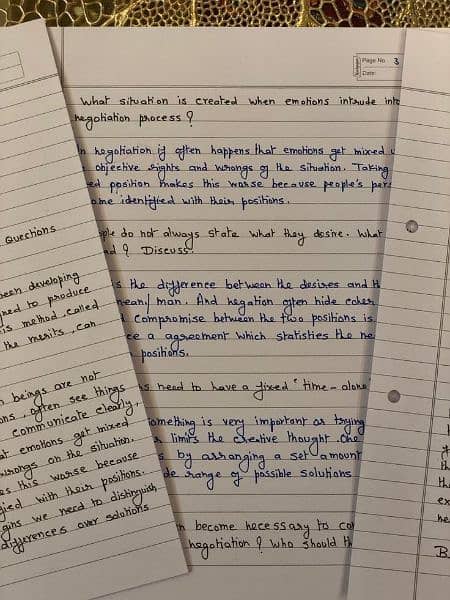 Page No. 3
Date:
What situation is created when emotions intrude into
negotiation process ?
negotiation it often happens that emotions get mixed
objective rights and wrongs of the situation. Taking
position makes this worse because people's per
ome identified with their positions.
ple do not always state what they desire. What
? Discuss.
the difference between the desires and th
mean/ man. And negation often hide other
compromise between the two positions is
ce a agreement which statisties the ne
positions.
need to have a fixed "time-alone
omething is very important as trying
limits the creative thought. One
by arranging a set amount
de range of possible solutions
become necessary to co
negotiation ? Who should th
Questions
been developing
ned to produce
is method, called
the merits, can
beings are not
ons, often see things
communicate clearly,
at emotions get mixed
wrongs on the situation.
es this worse because
fied with their positions.
gins we need to distinguish
differences over solutions
th
th
ex
he
B